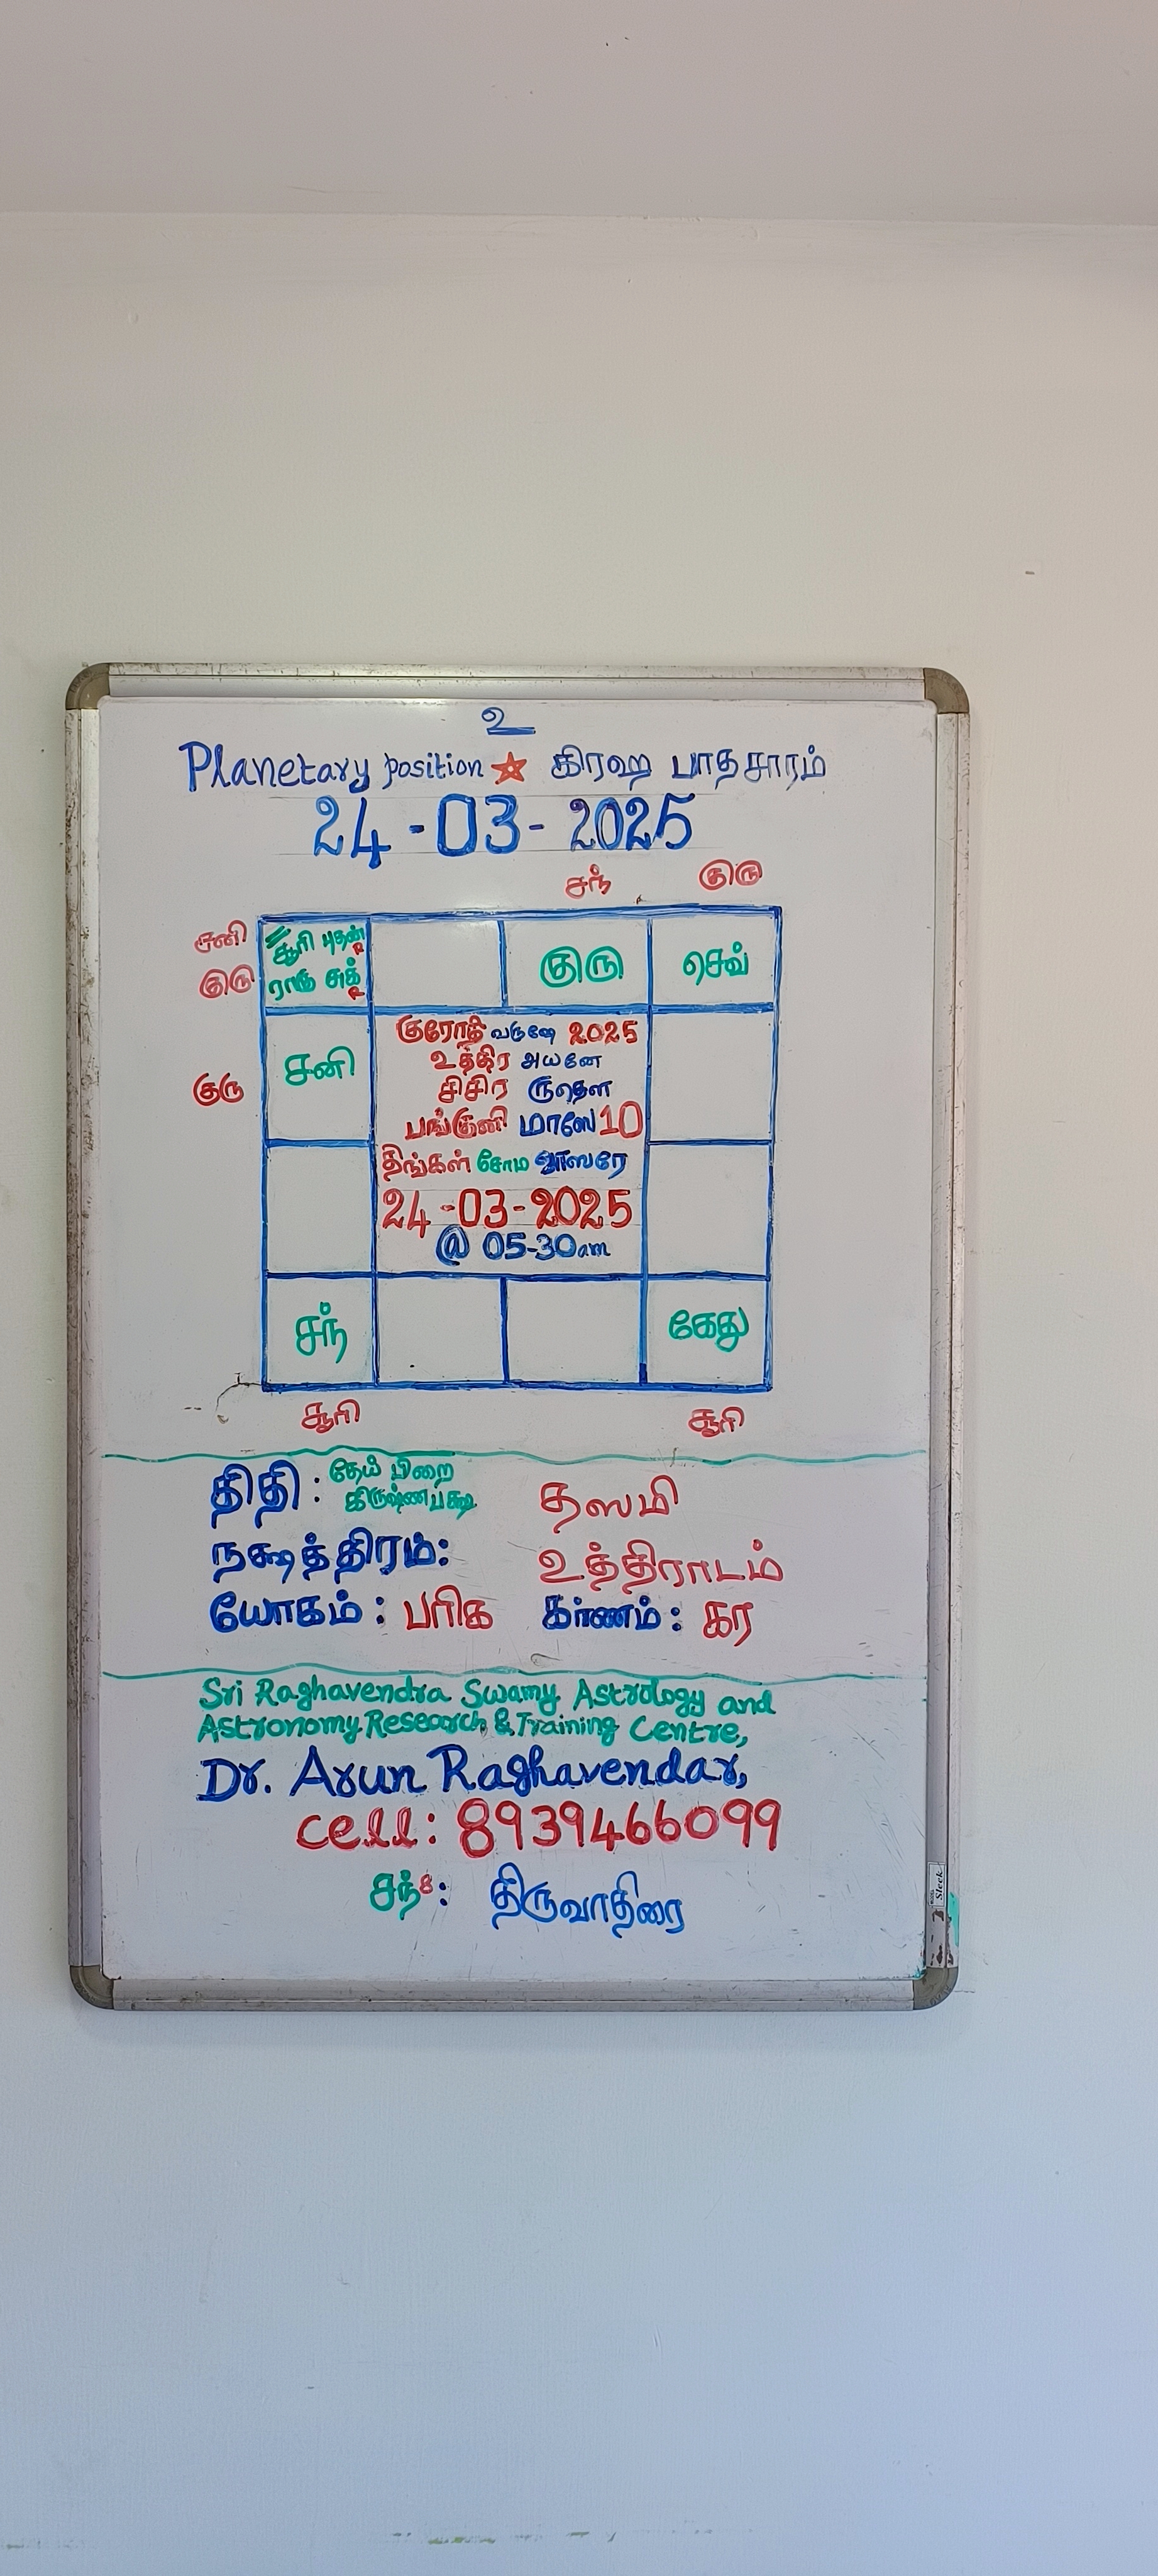 உ
Planetary position கிரஹ பாதசாரம்
24-03-2025
சந் குரு
சனி சூரி புதன் R
குரு ராகு சுக் R
குரு செவ்
சனி
குரு
குரோதி வருஷே 2025
உத்திர அயனே
சிசிர ருதௌ
பங்குனி மாஸே 10
திங்கள் சோம வாஸரே
24-03-2025
@ 05-30am
சந் கேது
சூரி சூரி
திதி : தேய் பிறை
கிருஷ்ணபக்ஷ தஸமி
நக்ஷத்திரம்: உத்திராடம்
யோகம் : பரிக கர்ணம் : கர
Sri Raghavendra Swamy Astrology and
Astronomy Research & Training Centre,
Dr. Arun Raghavendar,
cell: 8939466099
சந் 8 : திருவாதிரை
Sleek